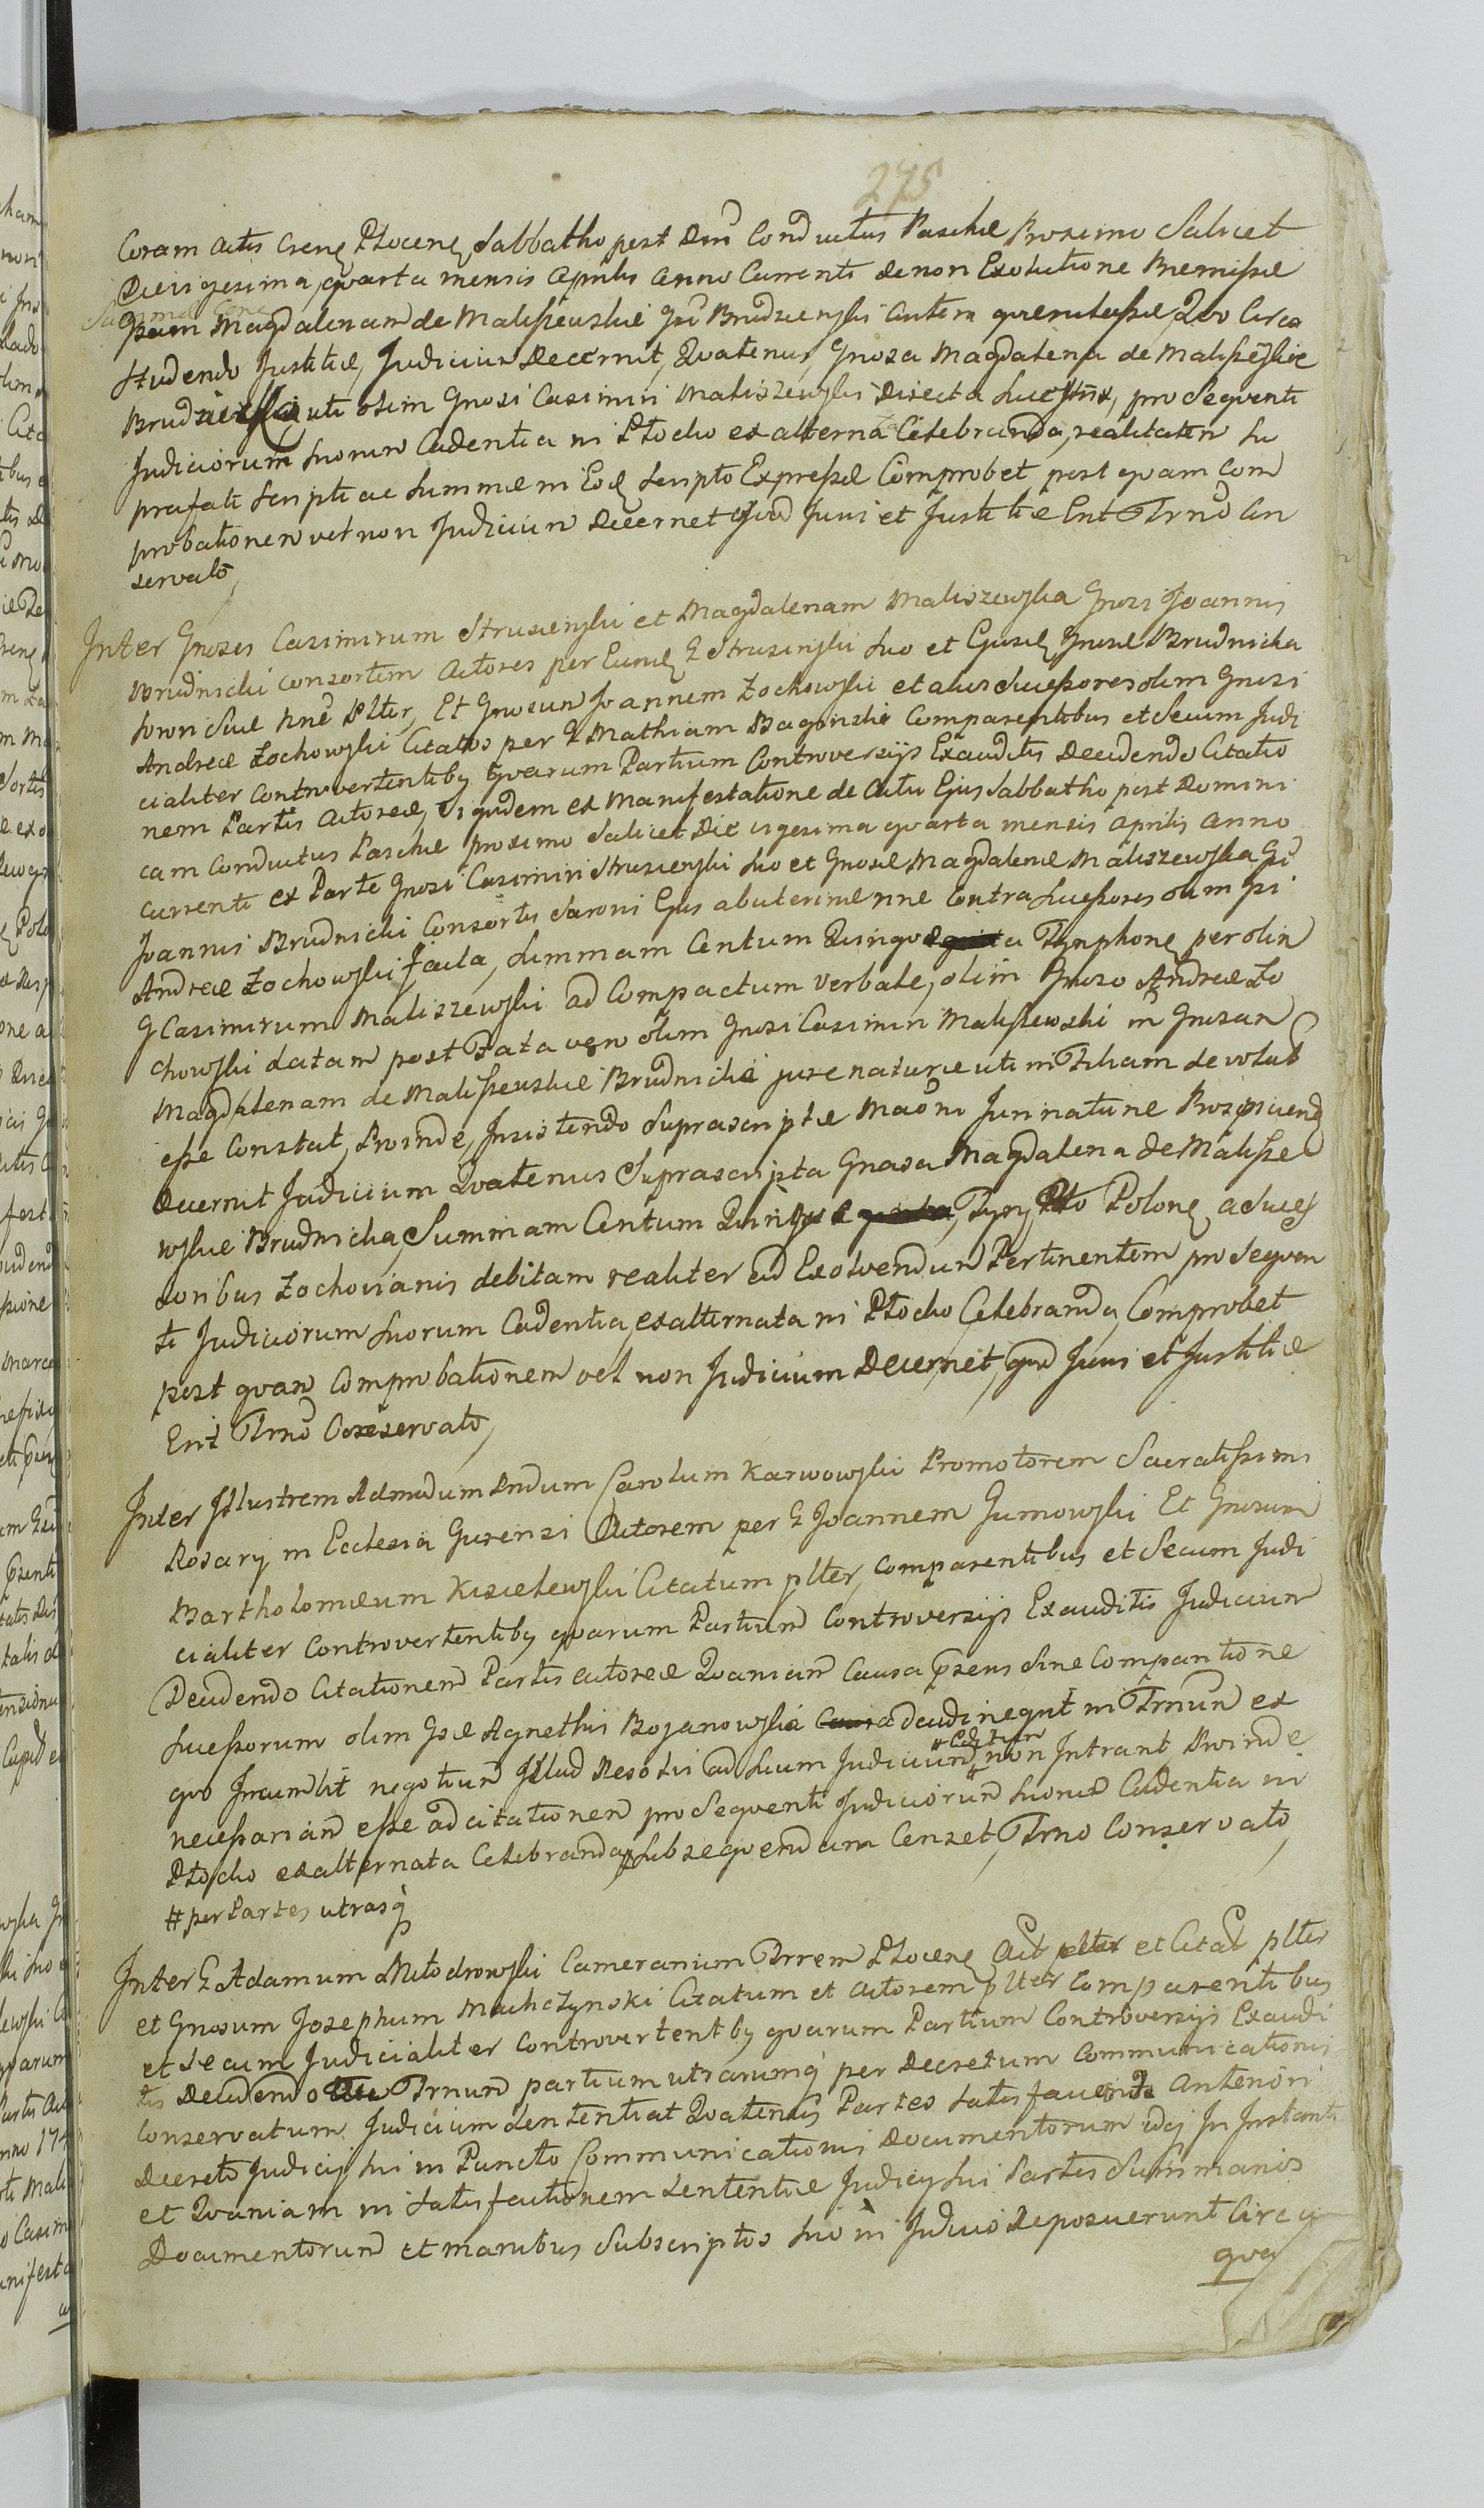 275
Coram Actis Crens Plocens Sabbatho post Dni Conductus Paschæ Proximo Salicet
Die vigesima quarta mensis Aprilis Anno Currenti de non Exolutione Præmissæ
Magdalenam de Maliszewskie Gsi Brudzienski Autem querulasse Quo Circa
studendo Justitiæ, Judicium Decernit, Quatenus Gnosa Magdalena de Maliszewskie
Brudzienska uti olim Gnosi Casimiri Maliszewski Directa pro Sequenti
Judiciorum suorum Cadentia in Plocko ex alterna Celebranda, realitatem su
prafati scripti ac summæ in Eod scripto Expressæ Comprobet post quam Com
probationem vel non Judicium Decernet quid Juri et Justitiæ Erit Trno Con
servato,
Inter Gnosos Casimirum Strusienski et Magdalenam Maliszewska Gnosi Joannis
Brudnicki consortem Actores per Eund G Strusinski suo et Ejusd Gnosæ Brudnicka
Sororis suæ nne plter, Et Gnosum Joannem Zochowski et alios sucessores olim Gnosi
Andreæ Zochowski Citatos per G Mathiam Bagenski Comparentibus et secum Judi
cialiter controvertentibq quarum Partium Controversijs Exauditis Decidendo Citatio
nem Partis Actoreæ, Siquidem ex Manifestatione de Actu Ejus Sabbatho post Domini
cam Conductus Paschæ proximo Salicet Die vigesima quarta mensis Aprilis Anno
currenti ex Parte Gnosi Casimiri Strusienski suo et Gnosæ Magdalenæ Maliszewska Gsi
Joannis Brudnicki Consortis Sarori Ejus abuterinæ nne Contra sucessores olim Gsi
Andreæ Zochowski facta, summam Centum Quinqua Tynphone per olim
G Casimirum Maliszewski ad Compactum verbale, olim Gnoso Andreæ Zo
chowski datam post Fata vero olim Gnosi Casimiri Maliszewski in Gnosam
Magdalenam de Maliszewskie Brudnicka jure naturæ uti in Filiam devolut
esse Constat, Proinde, Insistendo Suprascriptæ Maoni Juri naturæ Prospiciend
Decernit Judicium Quatenus Suprascripta Gnosa Magdalena de Malisze
wskie Brudnicka, Summam Centum Tynf Polone a suces
soribus Zochovianis debitam realiter ad Exolvendum Pertinentem pro Sequen
ti Judiciorum suorum Cadentia, ex alternata in Plocko Celebranda, Comprobet
post quam Comprobationem vel non Judicium Decernet, quid Juri et Justitiæ
Erit Trno Conservato,
Inter Illustrem Admodum Rndum Carolum Karwowski Promotorem Sacratissimi
Rosarij in Ecclesia Gurensi Actorem per G Joannem Gumowski Et Gnosum
Bartholomæum Kisielewski Citatum plter, comparentibus et secum Judi
cialiter Controvertentibq quarum Partium Controversijs Exauditis Judicium
Decidendo Citationem Partis Actoreæ Quoniam Causa Præsens sine Compartione
sucessorum olim Gsæ Agnethis Bojanowska decidi nequit in Trnum ex
quo Incumbit negotium Illud Resolvi ad suum Judicium # non Intrant Proinde
necessariam esse adcitationem pro Sequenti Judiciorum suorum Cadentia in
Plocko ex alternata Celebranda # subsequendam Censet, Trno Conservato,
# per Partes utrasq
Inter G Adamum Młodrowski Camerarium Trrem Plocens Act plter et Citat plter
et Gnosum Josephum Machczynski Citatum et Actorem plter Comparentibus
et secum Judicialiter Controvertentibq quarum Partium Controversijs Exaudi
tis Decidendo Trnum partium utrarumq per Decretum Communicationis
Conservatum Judicium sententiat Quatenus Partes satisfaciendo Anteriori
Decreto Judicij sui in Puncto Communicationis Documentorum Idq In Instanti
et Quoniam in satisfactionem sententiæ Judicij sui Partes Summarios
Documentorum et manibus Subscriptos suo in Judicio Deposuerunt Circa
quæ